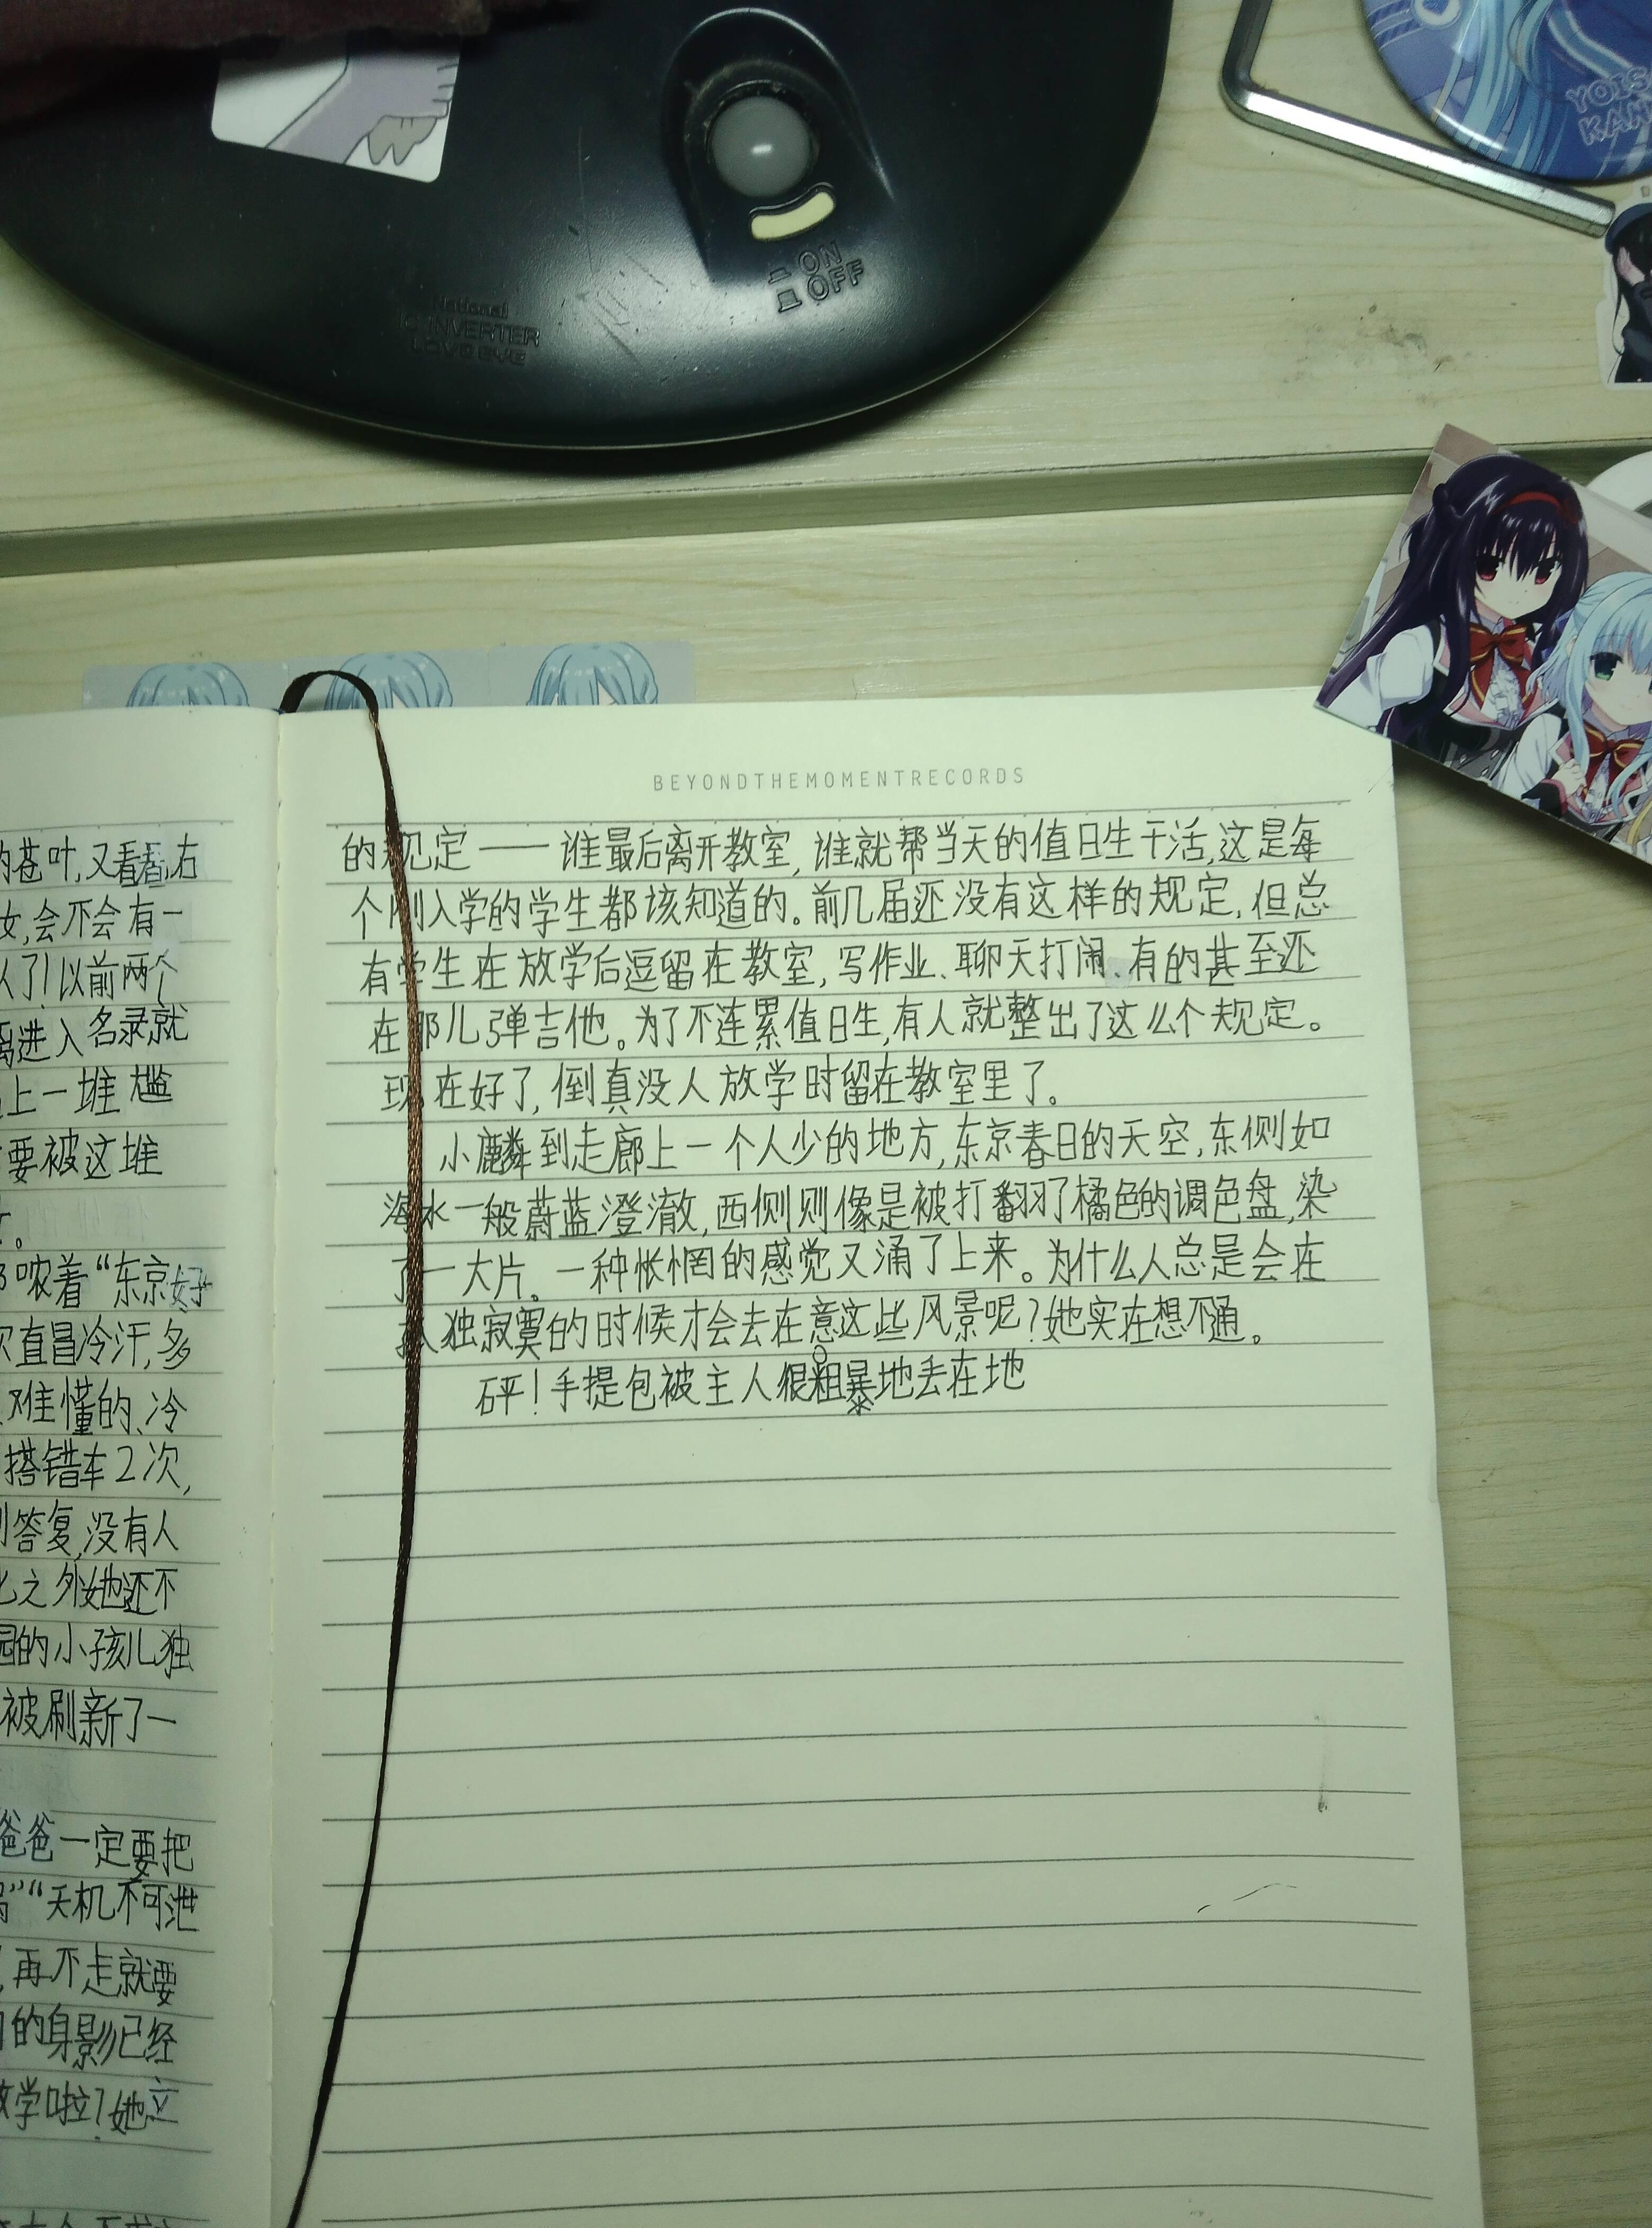 ON
OFF
National
CONVERTER
YOIS
KAN
BEYONDTHEMOMENTRECORDS
的苍叶,又看看右
女,会不会有一
以前两个
离进入名录就
上一堆尴
要被这堆
哝着“东京好
直冒冷汗,多
难懂的、冷
搭错车2次,
答复,没有人
之外她还不
的小孩儿独
被刷新了一
爸爸一定要把
”“天机不可泄
,再不走就要
的身影已经
学啦?她立
的规定——谁最后离开教室,谁就帮当天的值日生干活,这是每
个刚入学的学生都该知道的。前几届还没有这样的规定,但总
有学生在放学后逗留在教室,写作业、聊天打闹、有的甚至还
在那儿弹吉他。为了不连累值日生,有人就整出了这么个规定。
现在好了,倒真没人放学时留在教室里了。
小麟到走廊上一个人少的地方,东京春日的天空,东侧如
海水一般蔚蓝澄澈,西侧则像是被打翻了橘色的调色盘,染
了一大片。一种怅惘的感觉又涌了上来。为什么人总是会在
孤独寂寞的时候才会去在意这些风景呢?她实在想不通。
砰!手提包被主人很粗暴地丢在地